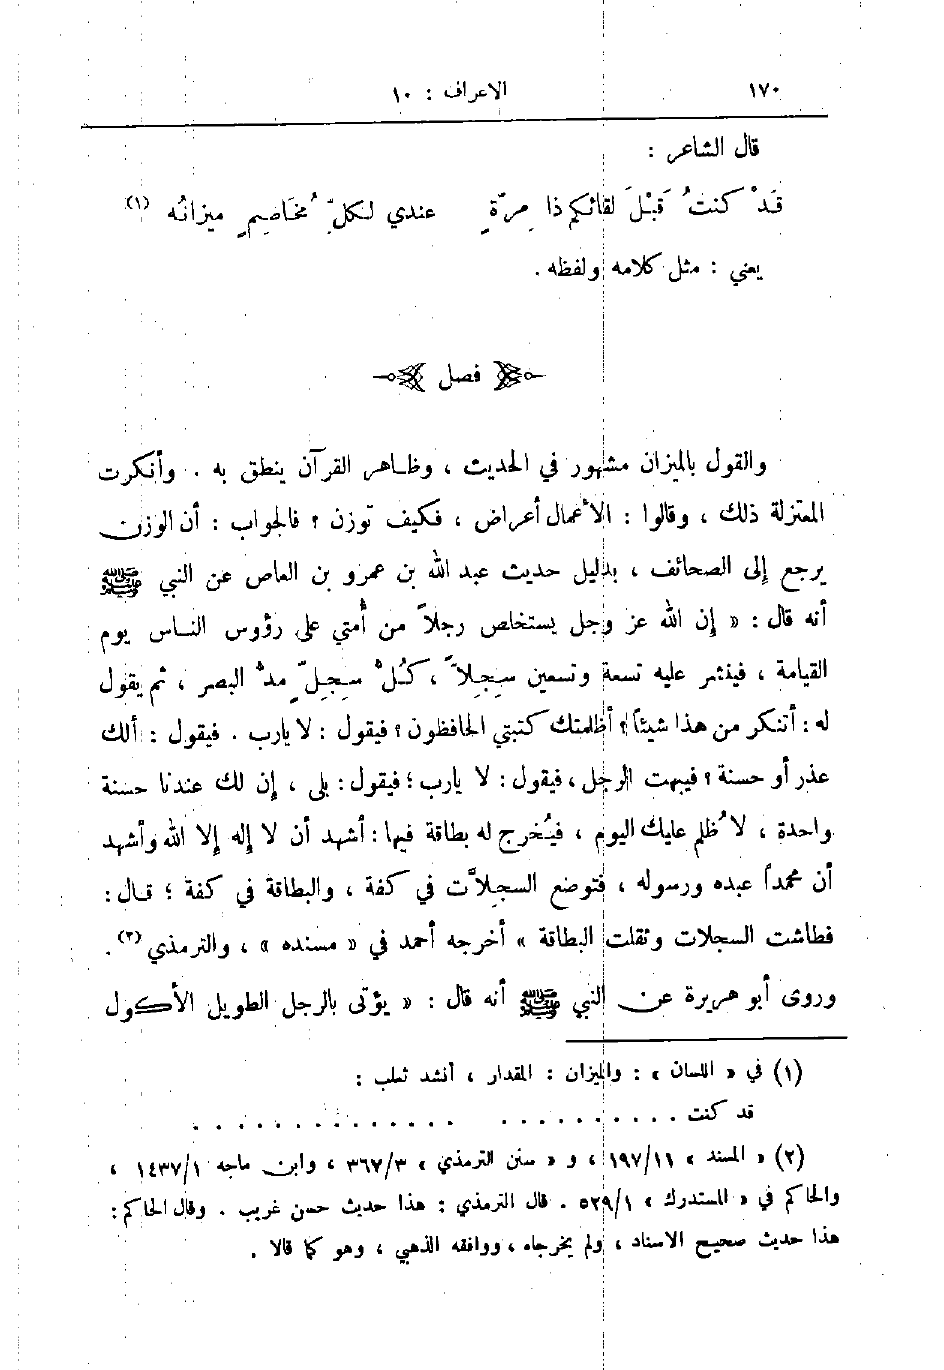 ١٧٠ الاعراف : ١٠
قال الشاعر :
قَدْ كنتُ قَبْلَ لقائكم ذا مِرّةٍ عندي لكلِّ مُخَاصِمٍ ميزانُه (١)
يعني : مثل كلامه ولفظه .
فصل
والقول بالميزان مشهور في الحديث ، وظاهر القرآن ينطق به . وأنكرت
المعتزلة ذلك ، وقالوا : الأعمال أعراض ، فكيف توزن ؟ فالجواب : أن الوزن
يرجع إلى الصحائف ، بدليل حديث عبد الله بن عمرو بن العاص عن النبي ﷺ
أنه قال : « إن الله عز وجل يستخلص رجلاً من أُمتي على رؤوس الناس يوم
القيامة ، فينشر عليه تسعة وتسعين سِجِلاًّ ، كُلُّ سِجِلٍّ مدُّ البصر ، ثم يقول
له : أتنكر من هذا شيئاً ؟ أظلمتك كتبتي الحافظون ؟ فيقول : لا يارب . فيقول : ألك
عذر أو حسنة ؟ فيبهت الرجل ، فيقول : لا يارب ؛ فيقول : بلى ، إن لك عندنا حسنة
واحدة ، لا ظُلم عليك اليوم ، فيُخرج له بطاقة فيها : أشهد أن لا إله إلا الله وأشهد
أن محمداً عبده ورسوله ، فتوضع السجِلاَّت في كفة ، والبطاقة في كفة ؛ قال :
فطاشت السجلات وثقلت البطاقة » أخرجه أحمد في « مسنده » ، والترمذي (٢) .
وروى أبو هريرة عن النبي ﷺ أنه قال : « يؤتى بالرجل الطويل الأكول
(١) في « اللسان » : والميزان : المقدار ، أنشد ثعلب :
قد كنت . . . . . . . . . . . . . . . . . . . .
(٢) « المسند » ١٩٧/١١ ، و « سنن الترمذي » ٣٦٧/٣ ، وابن ماجه ١٤٣٧/١ ،
والحاكم في « المستدرك » ٥٢٩/١ . قال الترمذي : هذا حديث حسن غريب . وقال الحاكم :
هذا حديث صحيح الاسناد ، ولم يخرجاه ، ووافقه الذهبي ، وهو كما قالا .